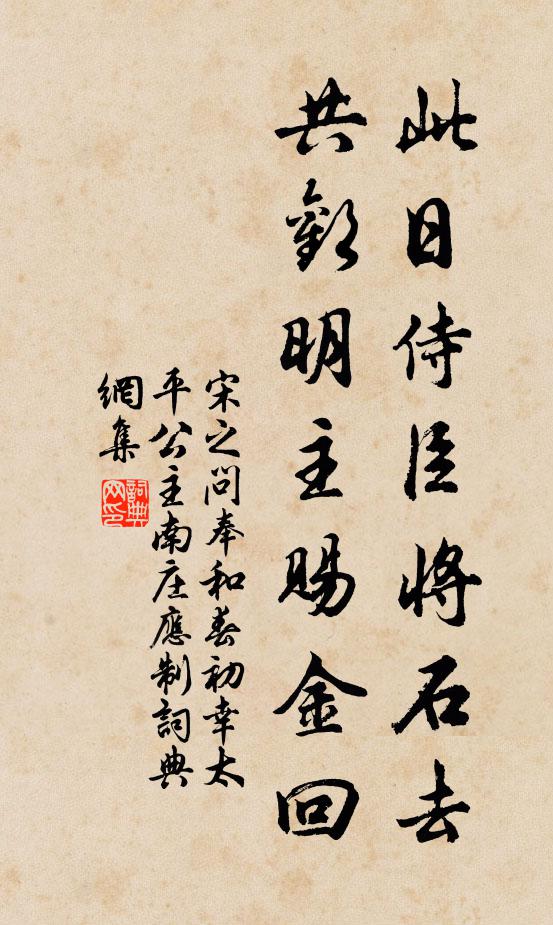 此日侍臣將石去
共歡明主賜金回
宋之問奉和春初幸太
平公主南庄應制詞典
網集
詞典
网印